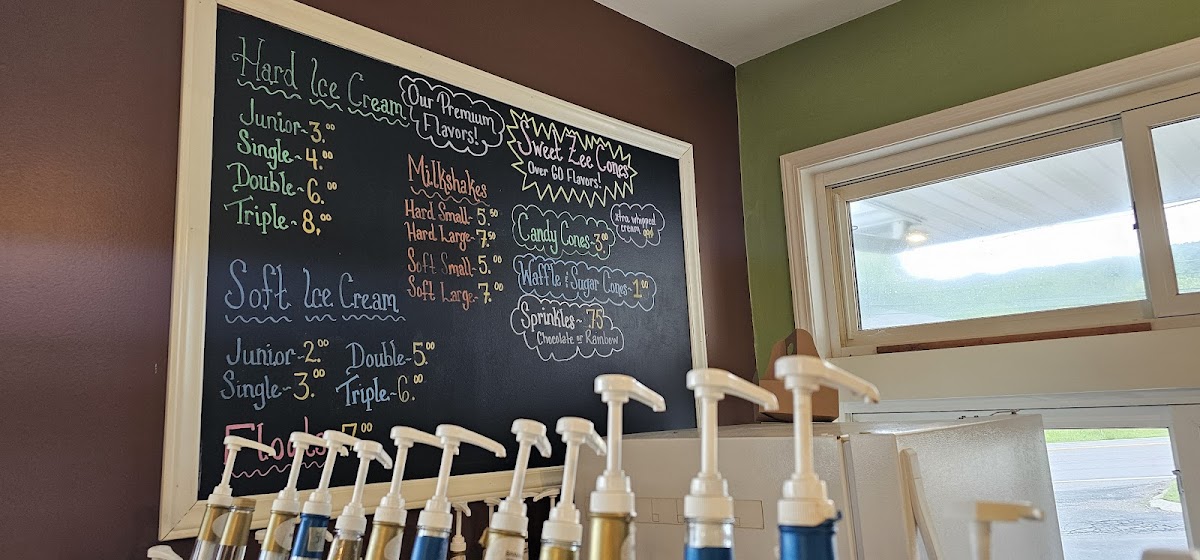 Hard Ice Cream
Junior~3.00
Single~4.00
Double~6.00
Triple~8.
Our Premium
Flavors!
Milkshakes
Hard Small-5.50
Hard Large-7.50
Soft Small-5.00
Soft Large-7.00
Sweet Zee Cones
Over 60 Flavors!
xtra whipped
cream
Candy Cones-3.00
Waffle & Sugar Cones~1.00
Sprinkles~.75
Chocolate or Rainbow
Soft Ice Cream
Junior~2.00
Single~3.00
Double-5.00
Triple~6.00
Floats 7.00